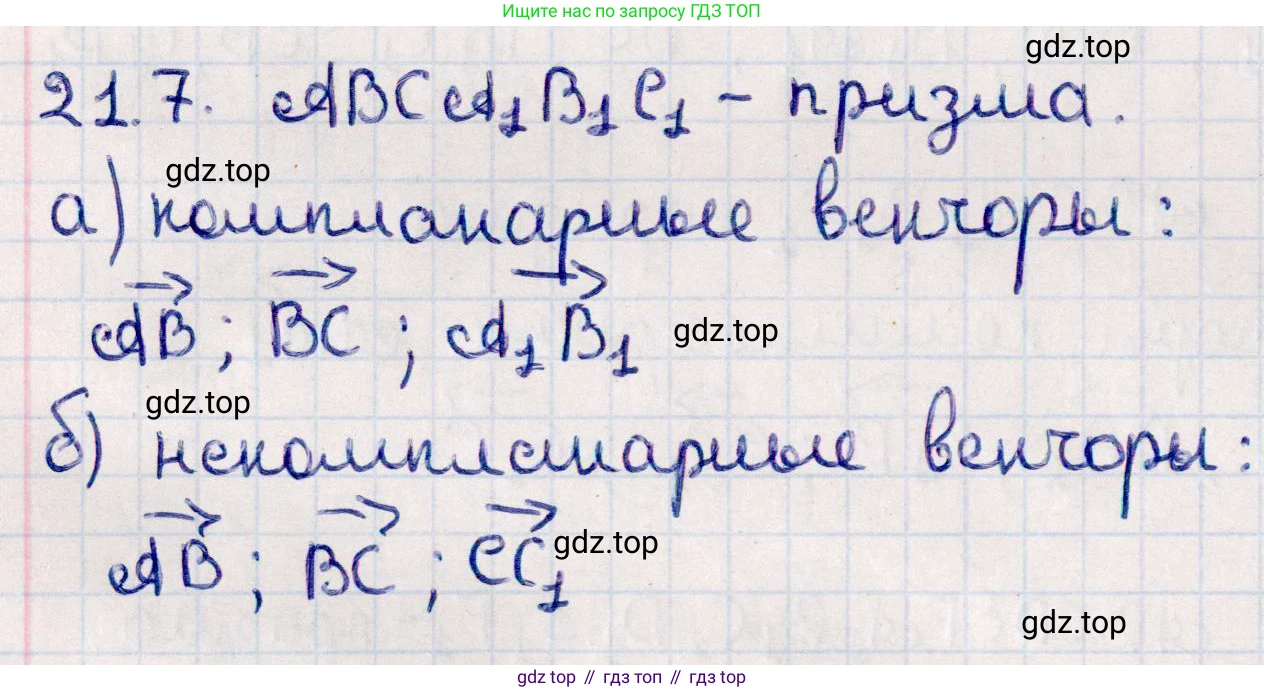 Ищите нас по запросу ГДЗ ТОП
gdz.top
21.7. ABCA₁B₁C₁ – призма.
gdz.top
а) компланарные векторы:
AB; BC; A₁B₁ gdz.top
gdz.top
б) некомпланарные векторы:
AB; BC; CC₁ gdz.top
gdz.top
gdz top // гдз топ // gdz top